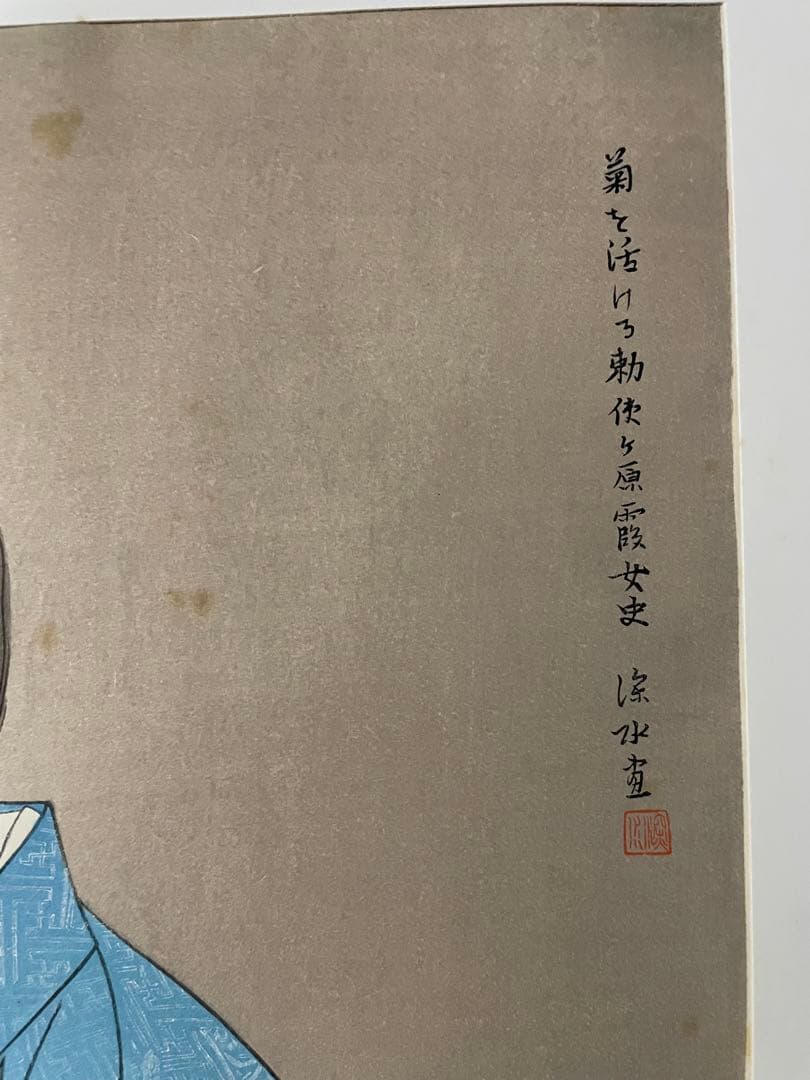 菊を活ける勅使ヶ原霞女史　深水画
深水